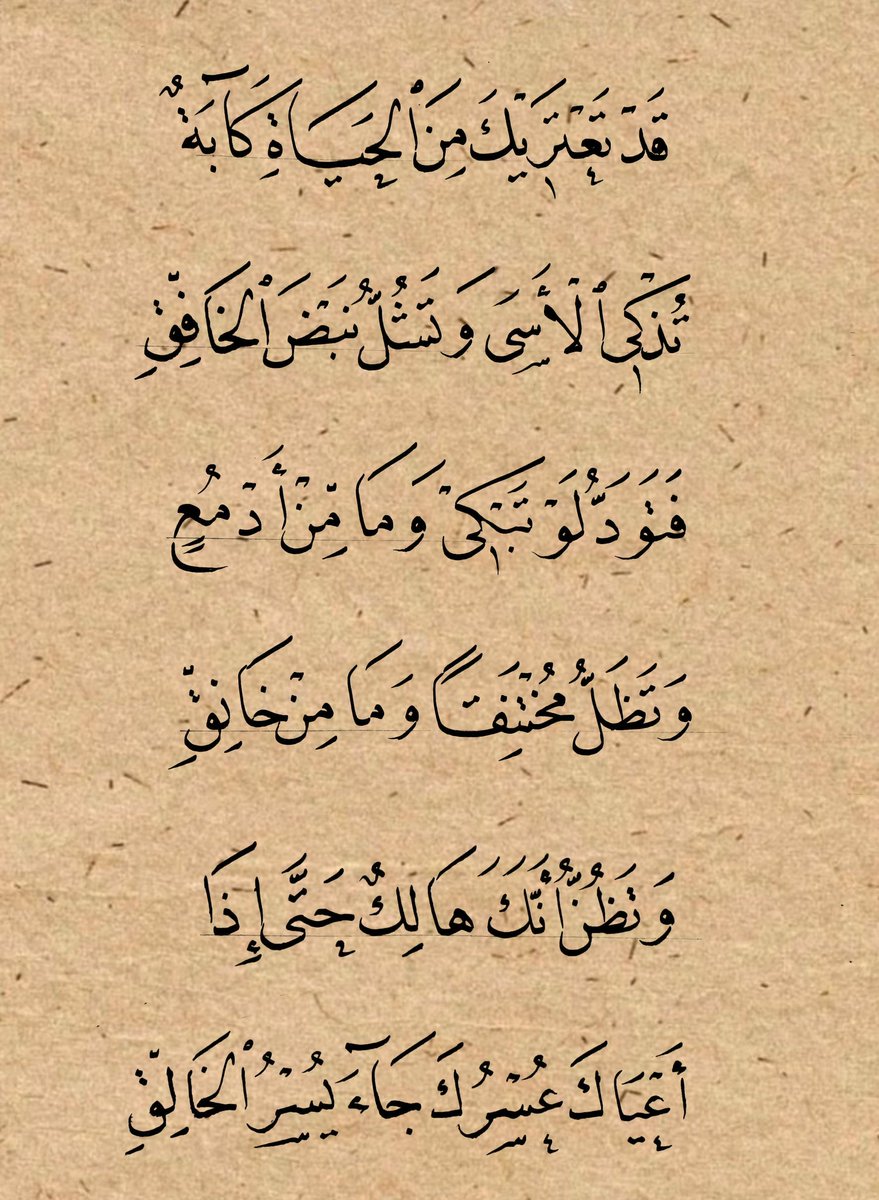 قَدْ تَعْتَرِيكَ مِنَ ٱلْحَيَاةِ كَآبَةٌ
تُذْكِي ٱلْأَسَى وَتَشُلُّ نَبْضَ ٱلْخَافِقِ
فَتَوَدُّ لَوْ تَبْكِي وَمَا مِنْ أَدْمُعٍ
وَتَظَلُّ مُخْتَنِقًا وَمَا مِنْ خَانِقِ
وَتَظُنُّ أَنَّكَ هَالِكٌ حَتَّى إِذَا
أَعْيَاكَ عُسْرُكَ جَآءَ يُسْرُ ٱلْخَالِقِ